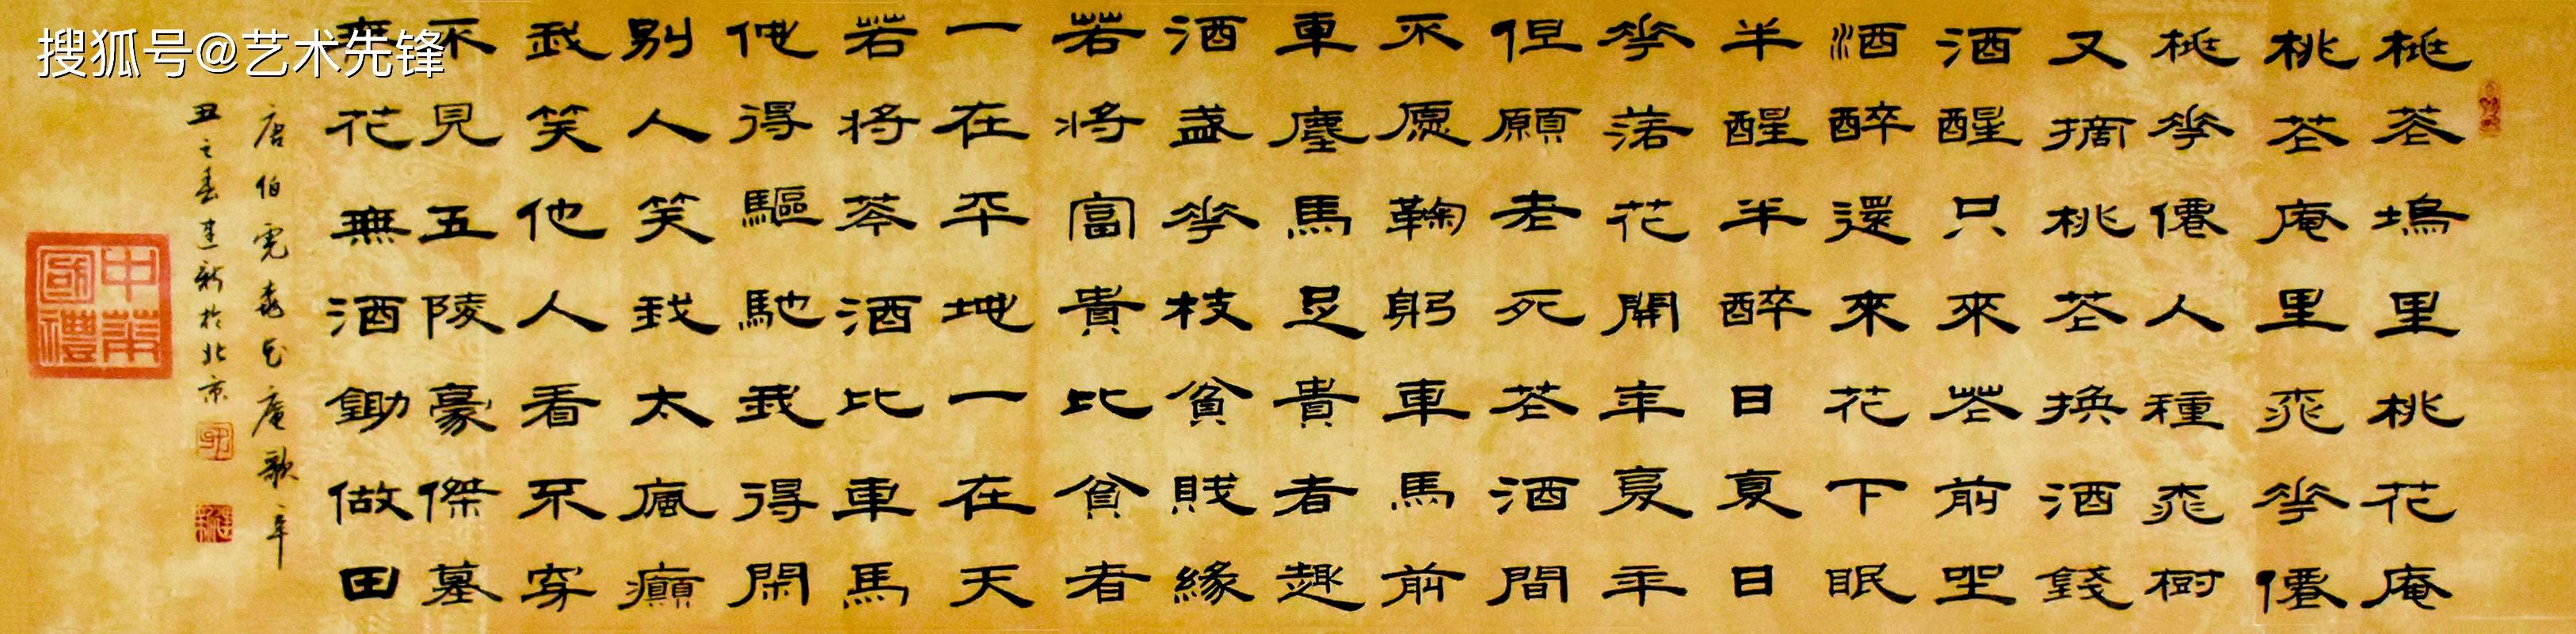 搜狐号@艺术先锋
桃花塢里桃花庵
桃花庵里桃花僊
桃花僊人種桃樹
又摘桃花換酒錢
酒醒只來花前坐
酒醉還來花下眠
半醒半醉日复日
花落花開年复年
但願老死花酒間
不愿鞠躬車馬前
車塵馬足貴者趣
酒盞花枝貧賤緣
若将富貴比貧者
一在平地一在天
若将花酒比車馬
他得驅馳我得閑
別人笑我太瘋癲
我笑他人看不穿
不見五陵豪傑墓
無花無酒鋤做田
唐伯虎桃花庵歌辛
丑之春建新於北京
中華國禮